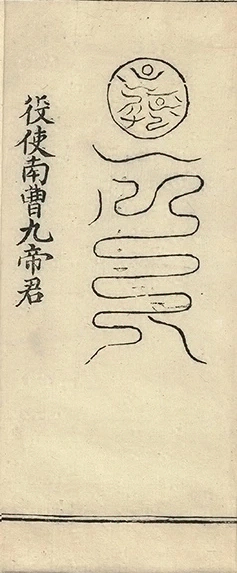 役使南曹九帝君